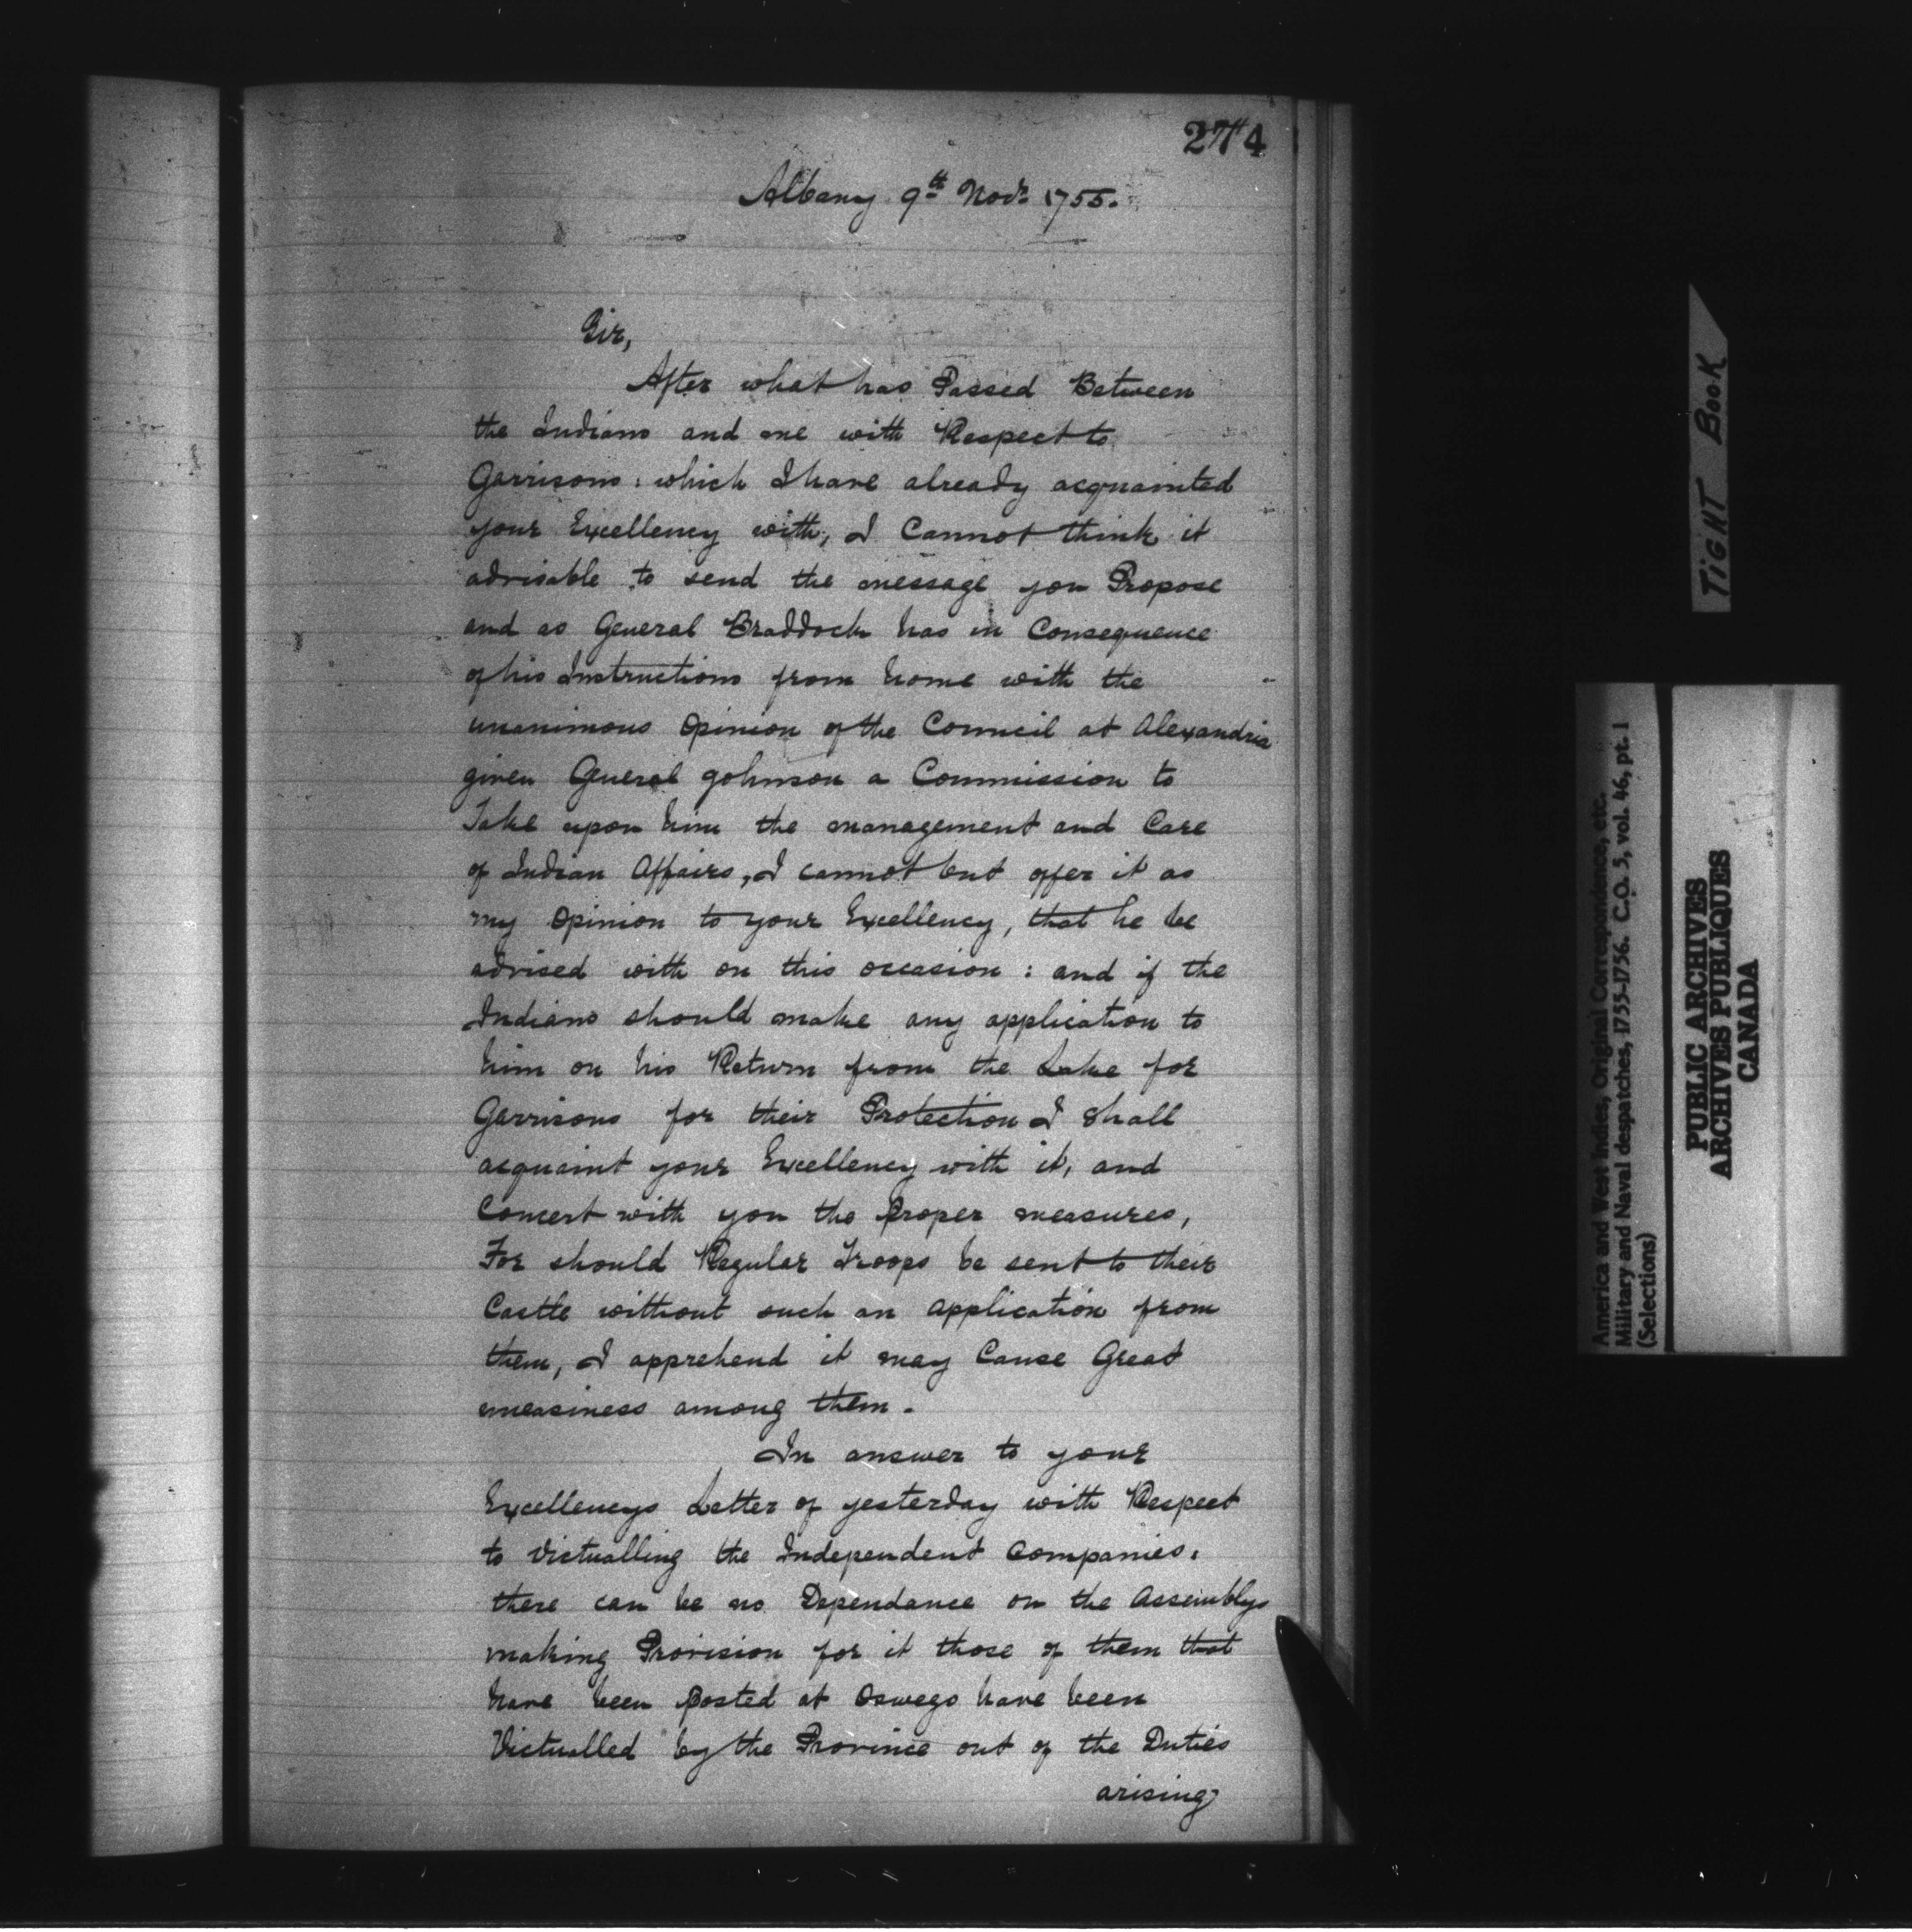 274
Albany 9th Novr 1755.
Sir,
After what has Passed Between
the Indians and me with Respect to
Garrisons: which I have already acquainted
your Excellency with, I Cannot think it
advisable to send the message you Propose
and as General Braddock has in Consequence
of his Instructions from home with the
unanimous Opinion of the Council at Alexandria
given General Johnson a Commission to
Take upon him the management and Care
of Indian Affairs, I cannot but offer it as
my Opinion to your Excellency, that he be
advised with on this occasion: and if the
Indians should make any application to
him on his Return from the Lake for
Garrisons for their Protection I shall
acquaint your Excellency with it, and
Concert with you the proper measures,
For should Regular Troops be sent to their
Castle without such an application from
them, I apprehend it may Cause Great
uneasiness among them.
In answer to your
Excellencys Letter of yesterday with Respect
to Victualling the Independent Companies,
there can be no Dependance on the Assemblys
making Provision for it those of them that
have been posted at Oswego have been
Victualled by the Province out of the Duties
arising
TIGHT BOOK
America and West Indies, Original Correspondence, etc.
Military and Naval despatches, 1755-1756. C.O. 5, vol. 46, pt. 1
(Selections)
PUBLIC ARCHIVES
ARCHIVES PUBLIQUES
CANADA